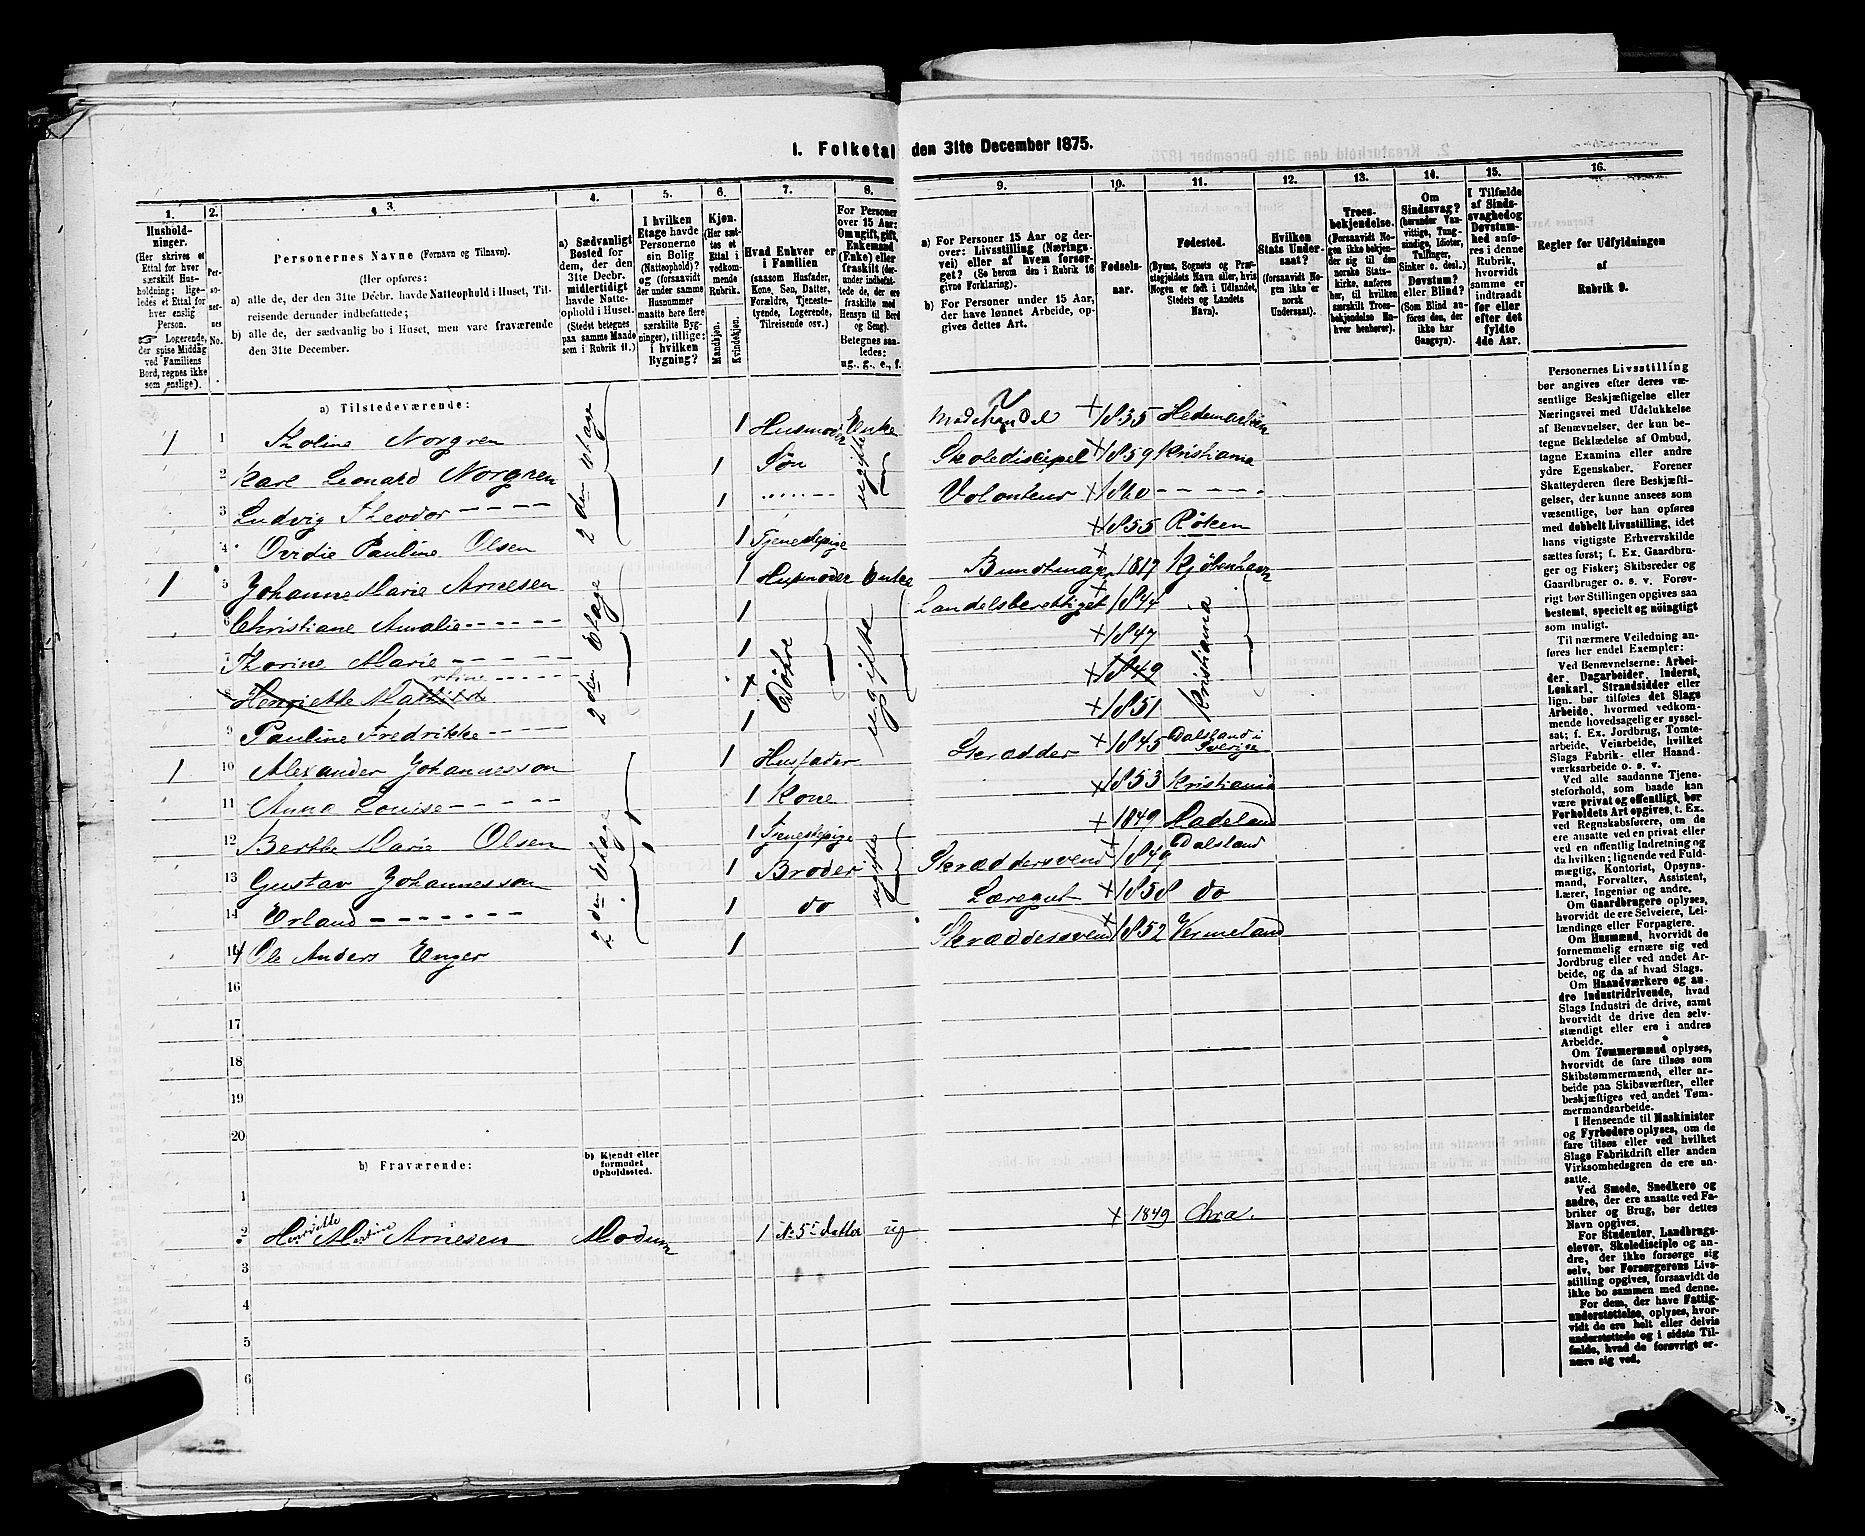 1. Folketal den 31te December 1875.
1. 2. 3. 4. 5. 6. 7. 8. 9. 10. 11. 12. 13. 14. 15. 16.
Hushold-
ninger.
(Her skrives et
Ettal for hver
særskilt Hus-
holdning; lige-
ledes et Ettal for
hver enslig
Person.
☞ Logerende,
der spise Middag
ved Familiens
Bord, regnes ikke
som enslige).
Per-
so-
ner-
nes
No.
Personernes Navne (Fornavn og Tilnavn).
(Her opføres:
a) alle de, der den 31te Decbr. havde Natteophold i Huset, Til-
reisende derunder indbefattede;
b) alle de, der sædvanlig bo i Huset, men vare fraværende
den 31te December.
a) Sædvanligt
Bosted for
dem, der den
31te Decbr.
midlertidigt
havde Natte-
ophold i Huset.
(Stedet betegnes
paa samme Maade
som i Rubrik 11.)
I hvilken
Etage havde
Personerne
sin Bolig
(Natteophold)?
og (forsaavidt
der under samme
Husnummer
maatte høre flere
særskilte Byg-
ninger), tillige:
i hvilken
Bygning?
Kjøn.
(Her sæt-
tes et
Ettal i
vedkom-
mende
Rubrik.
Mandkjøn.
Kvindekjøn.
Hvad Enhver er
i Familien
(saasom Husfader,
Kone, Søn, Datter,
Forældre, Tjeneste-
tyende, Logerende,
Tilreisende osv.)
For Personer
over 15 Aar:
Om ugift, gift,
Enkemand
(Enke) eller
fraskilt (der-
under indbefat-
tede de, der ere
fraskilte med
Hensyn til Bord
og Seng).
Betegnes saa-
ledes:
ug., g., e., f.
a) For Personer 15 Aar og der-
over: Livsstilling (Nærings-
vei) eller af hvem forsør-
get? (Se herom den i Rubrik 16
givne Forklaring).
b) For Personer under 15 Aar,
der have lønnet Arbeide, op-
gives dettes Art.
Fødsels-
aar.
Fødested.
(Byens, Sognets og Præ-
stegjeldets Navn eller, hvis
Nogen er født i Udlandet,
Stedets og Landets
Navn).
Hvilken
Stats Under-
saat?
(forsaavidt No-
gen ikke er
norsk
Undersaat).
Troes-
bekjendelse.
(Forsaavidt No-
gen ikke bekjen-
der sig til den
norske Stats-
kirke, anføres
her, til hvilken
særskilt Troes-
bekjendelse En-
hver henhører).
Om
Sindssvag?
(herunder Van-
vittige, Tung-
sindige, Idioter,
Tullinger,
Sinker o. desl.)
Døvstum?
eller Blind?
(Som Blind an-
føres den, der
ikke har
Gangsyn).
I Tilfælde
af Sinds-
svaghed og
Døvstum-
hed anfø-
res i denne
Rubrik,
hvorvidt
samme er
indtraadt
før eller
efter det
fyldte
4de Aar.
Regler for Udfyldningen
af
Rubrik 9.
a) Tilstedeværende:
1 1 Tholine Norgren 2 den Etage 1 Husmoder Enke Modehandel 1835 Hedemarken
2 Karl Leonard Norgren 1 Søn ugifte Skolediscipel 1859 Kristiania
3 Ludvig Theodor - - - - 1 Volonteur 1860 - - - - -
4 Ovidie Pauline Olsen 1 Tjenestepige 1855 Røken
1 5 Johanne Marie Arnesen 2 den Etage 1 Husmoder Enke Buntmager 1817 Kjøbenhavn
6 Christiane Amalie - - - - - 1 Døtre ugifte Handelsberettiget 1844 Kristiania
7 Thorine Marie - - - - - 1 1847
8 Henriette Mathilde 1849
9 Pauline Fredrikke - - - 1 1851
1 10 Alexander Johannesson 2 den Etage 1 Husfader Skrædder 1845 Dalsland i Sverige
11 Anna Louise - - - - - 1 Kone 1853 Kristiania
12 Berthe Marie Olsen 1 Tjenestepige ugifte 1849 Hadeland
13 Gustav Johannesson 1 Broder Skræddersvend 1849 Dalsland
14 Erland - - - - - - - 1 do Læregut 1858 do
1 Ole Anders Enger 1 Skræddersvend 1852 Vermeland
16
17
18
19
20
b) Fraværende:
b) Kjendt eller
formodet
Opholdssted.
1
2 Henriette Martine Arnesen Modum 1 No 5s datter ug 1849 Chra.
3
4
5
6
Personernes Livsstilling
bør angives efter deres væ-
sentlige Beskjæftigelse eller
Næringsvei med Udelukkelse
af Benævnelser, der kun be-
tegne Beklædelse af Ombud,
tagne Examina eller andre
ydre Egenskaber. Forener
Skatteyderen flere Beskjæfti-
gelser, der kunne ansees som
væsentlige, bør han opføres
med dobbelt Livsstilling, idet
hans vigtigste Erhvervskilde
sættes først; f. Ex. Gaardbru-
ger og Fisker; Skibsreder og
Gaardbruger o. s. v. Forøv-
rigt bør Stillingen opgives saa
bestemt, specielt og nøiagtigt
som muligt.
Til nærmere Veiledning an-
føres her endel Exempler:
Ved Benævnelserne: Arbei-
der, Dagarbeider, Inderst,
Løskarl, Strandsidder eller
lign. bør tilføies det Slags
Arbeide, hvormed vedkom-
mende hovedsagelig er syssel-
sat; f. Ex. Jordbrug, Tomte-
arbeide, Veiarbeide, hvilket
Slags Fabrik- eller Haand-
værksarbeide o. s. v.
Ved alle saadanne Tjene-
steforhold, som baade kan
være privat og offentligt, bør
Forholdets Art opgives, t. Ex.
ved Regnskabsførere, om de
ere ansatte ved en privat eller
en offentlig Indretning og
da hvilken; lignende ved Fuld-
mægtig, Kontorist, Opsyns-
mand, Forvalter, Assistent,
Lærer, Ingeniør og andre.
Om Gaardbrugere oplyses,
hvorvidt de ere Selveiere, Lei-
lændinge eller Forpagtere.
Om Husmænd, hvorvidt de
fornemmelig ernære sig ved
Jordbrug eller ved andet Ar-
beide, og da af hvad Slags.
Om Haandværkere og an-
dre Industridrivende, hvad
Slags Industri de drive, samt
hvorvidt de drive den selv-
stændigt eller ere i andres
Arbeide.
Om Tømmermænd oplyses,
hvorvidt de fare tilsøs som
Skibstømmermænd, eller ar-
beide paa Skibsværfter, eller
beskjæftiges ved andet Tøm-
mermandsarbeide.
I Henseende til Maskinister
og Fyrbødere oplyses, om de
fare tilsøs eller ved hvilket
Slags Fabrikdrift eller anden
Virksomhedsgren de ere an-
satte.
Ved Smede, Snedkere og
andre, der ere ansatte ved Fa-
briker og Brug, bør dettes
Navn opgives.
For Studenter, Landbrugs-
elever, Skoledisciple og an-
dre, der ikke forsørge sig
selv, bør Forsørgerens Livs-
stilling opgives, forsaavidt de
ikke bo sammen med denne.
For dem, der have Fattig-
understøttelse, oplyses, hvor-
vidt de ere helt eller delvis
understøttede og i sidste Til-
fælde, hvad de forøvrigt er-
nære sig ved.